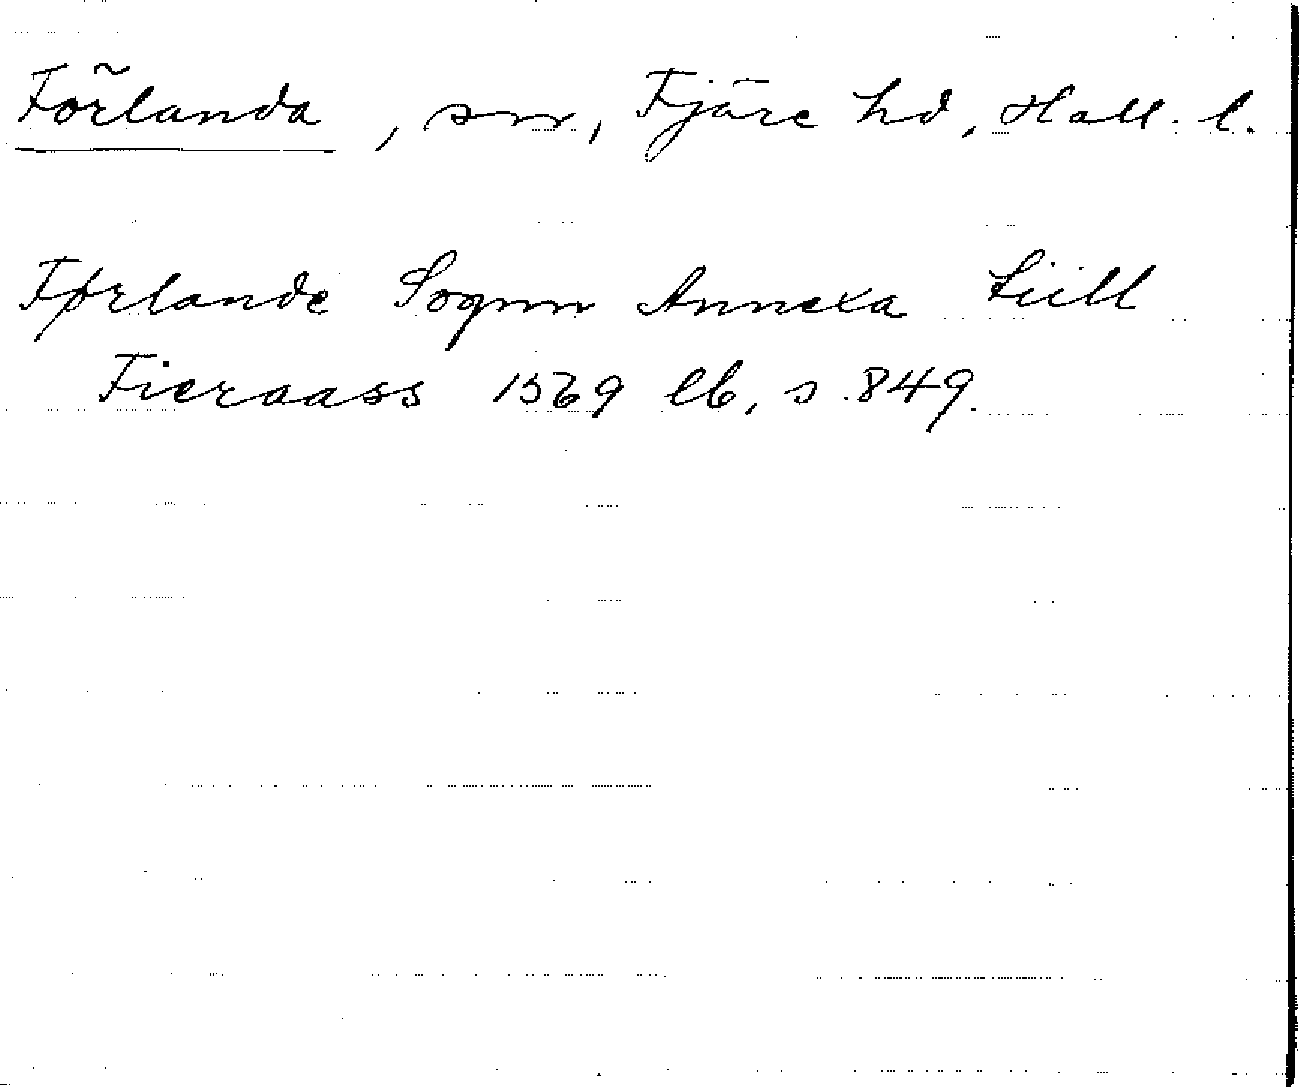 Förlanda, sn, Fjäre hd, Hall. l.
Førlande Sognn Annexa tiill
Fieraass 1569 lb, s. 849.